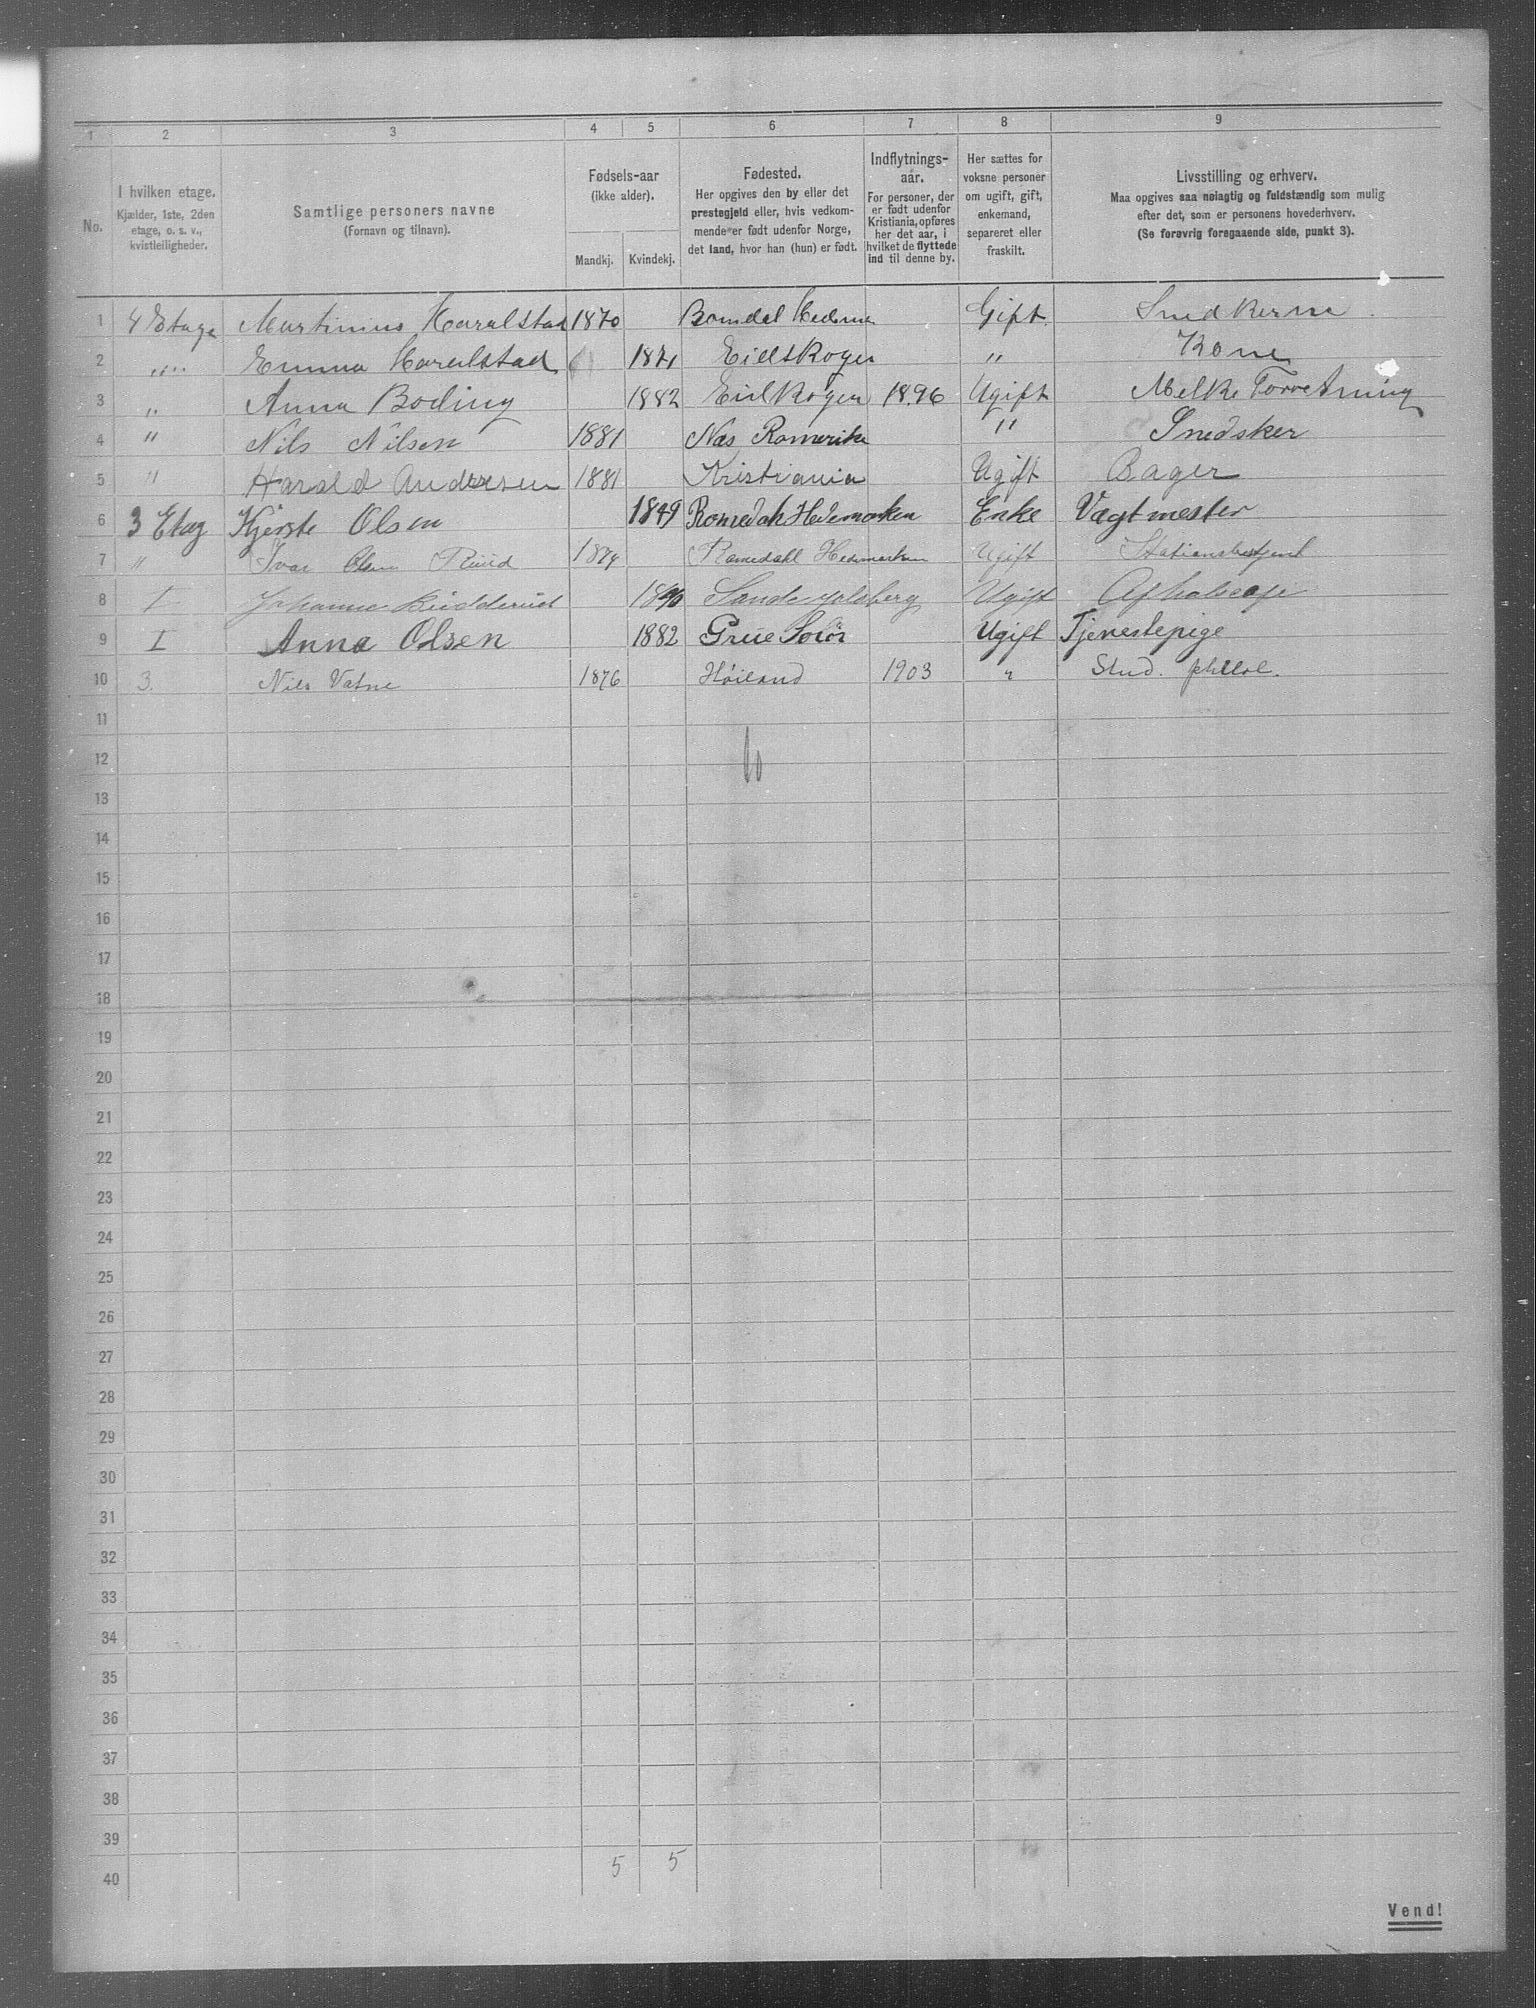 1 2 3 4 5 6 7 8 9
No.
I hvilken etage.
Kjælder, 1ste, 2den
etage, o. s. v.,
kvistleiligheder.
Samtlige personers navne
(Fornavn og tilnavn).
Fødsels-aar
(ikke alder).
Mandkj. Kvindekj.
Fødested.
Her opgives den by eller det
prestegjeld eller, hvis vedkom-
mende er født udenfor Norge,
det land, hvor han (hun) er født.
Indflytnings-
aar.
For personer, der
er født udenfor
Kristiania, opføres
her det aar, i
hvilket de flyttede
ind til denne by.
Her sættes for
voksne personer
om ugift, gift,
enkemand,
separeret eller
fraskilt.
Livsstilling og erhverv.
Maa opgives saa nøiagtig og fuldstændig som mulig
efter det, som er personens hovederhverv.
(Se forøvrig foregaaende side, punkt 3).
1 4 Etage Martinius Haralstad 1870 Romdal Hedem Gift. Snedkersve
2 „ „ Emma Haralstad 1871 Eidskogen „ Kone
3 „ Anna Boding 1882 Eidskogen 1896 Ugift Melke Forretning
4 „ Nils Nilsen 1881 Næs Romerike „ Snedsker
5 „ Harald Andersen 1881 Kristiania Ugift Bager
6 3 Etag Kjerste Olsen 1849 Romedal Hedemarken Enke Vagtmester
7 „ Ivar Olsen Ruud 1874 Romedahl Hedemarken Ugift Stationsbetjent
8 I Johanne 18 Sande Jarlsberg Ugift
9 I Anna Olsen 1882 Grue Solør Ugift Tjenestepige
10 3. Nils Vatne 1876 Høiland 1903 „ Stud. philol.
11
12 10
13
14
15
16
17
18
19
20
21
22
23
24
25
26
27
28
29
30
31
32
33
34
35
36
37
38
39
40 5 5
Vend!